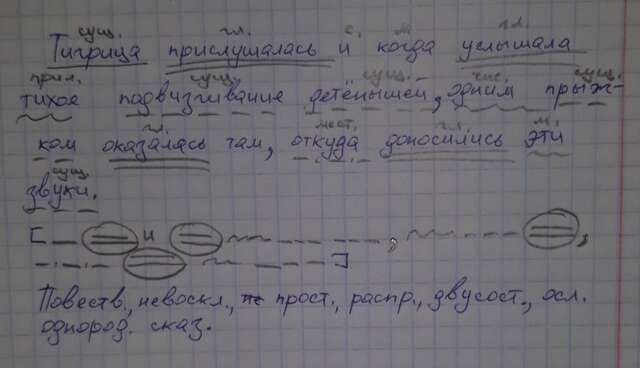 сущ. гл. с. м. гл.
Тигрица прислушалась и когда услышала
прил. сущ. сущ. чис. сущ.
тихое падвизгивание детёнышей, одним прыж-
гл. мест. гл. м.
ком оказалась там, откуда доносились эти
сущ.
звуки.
[ и , , ]
Повеств., невоскл., прост., распр., двусост., осл.
однород. сказ.